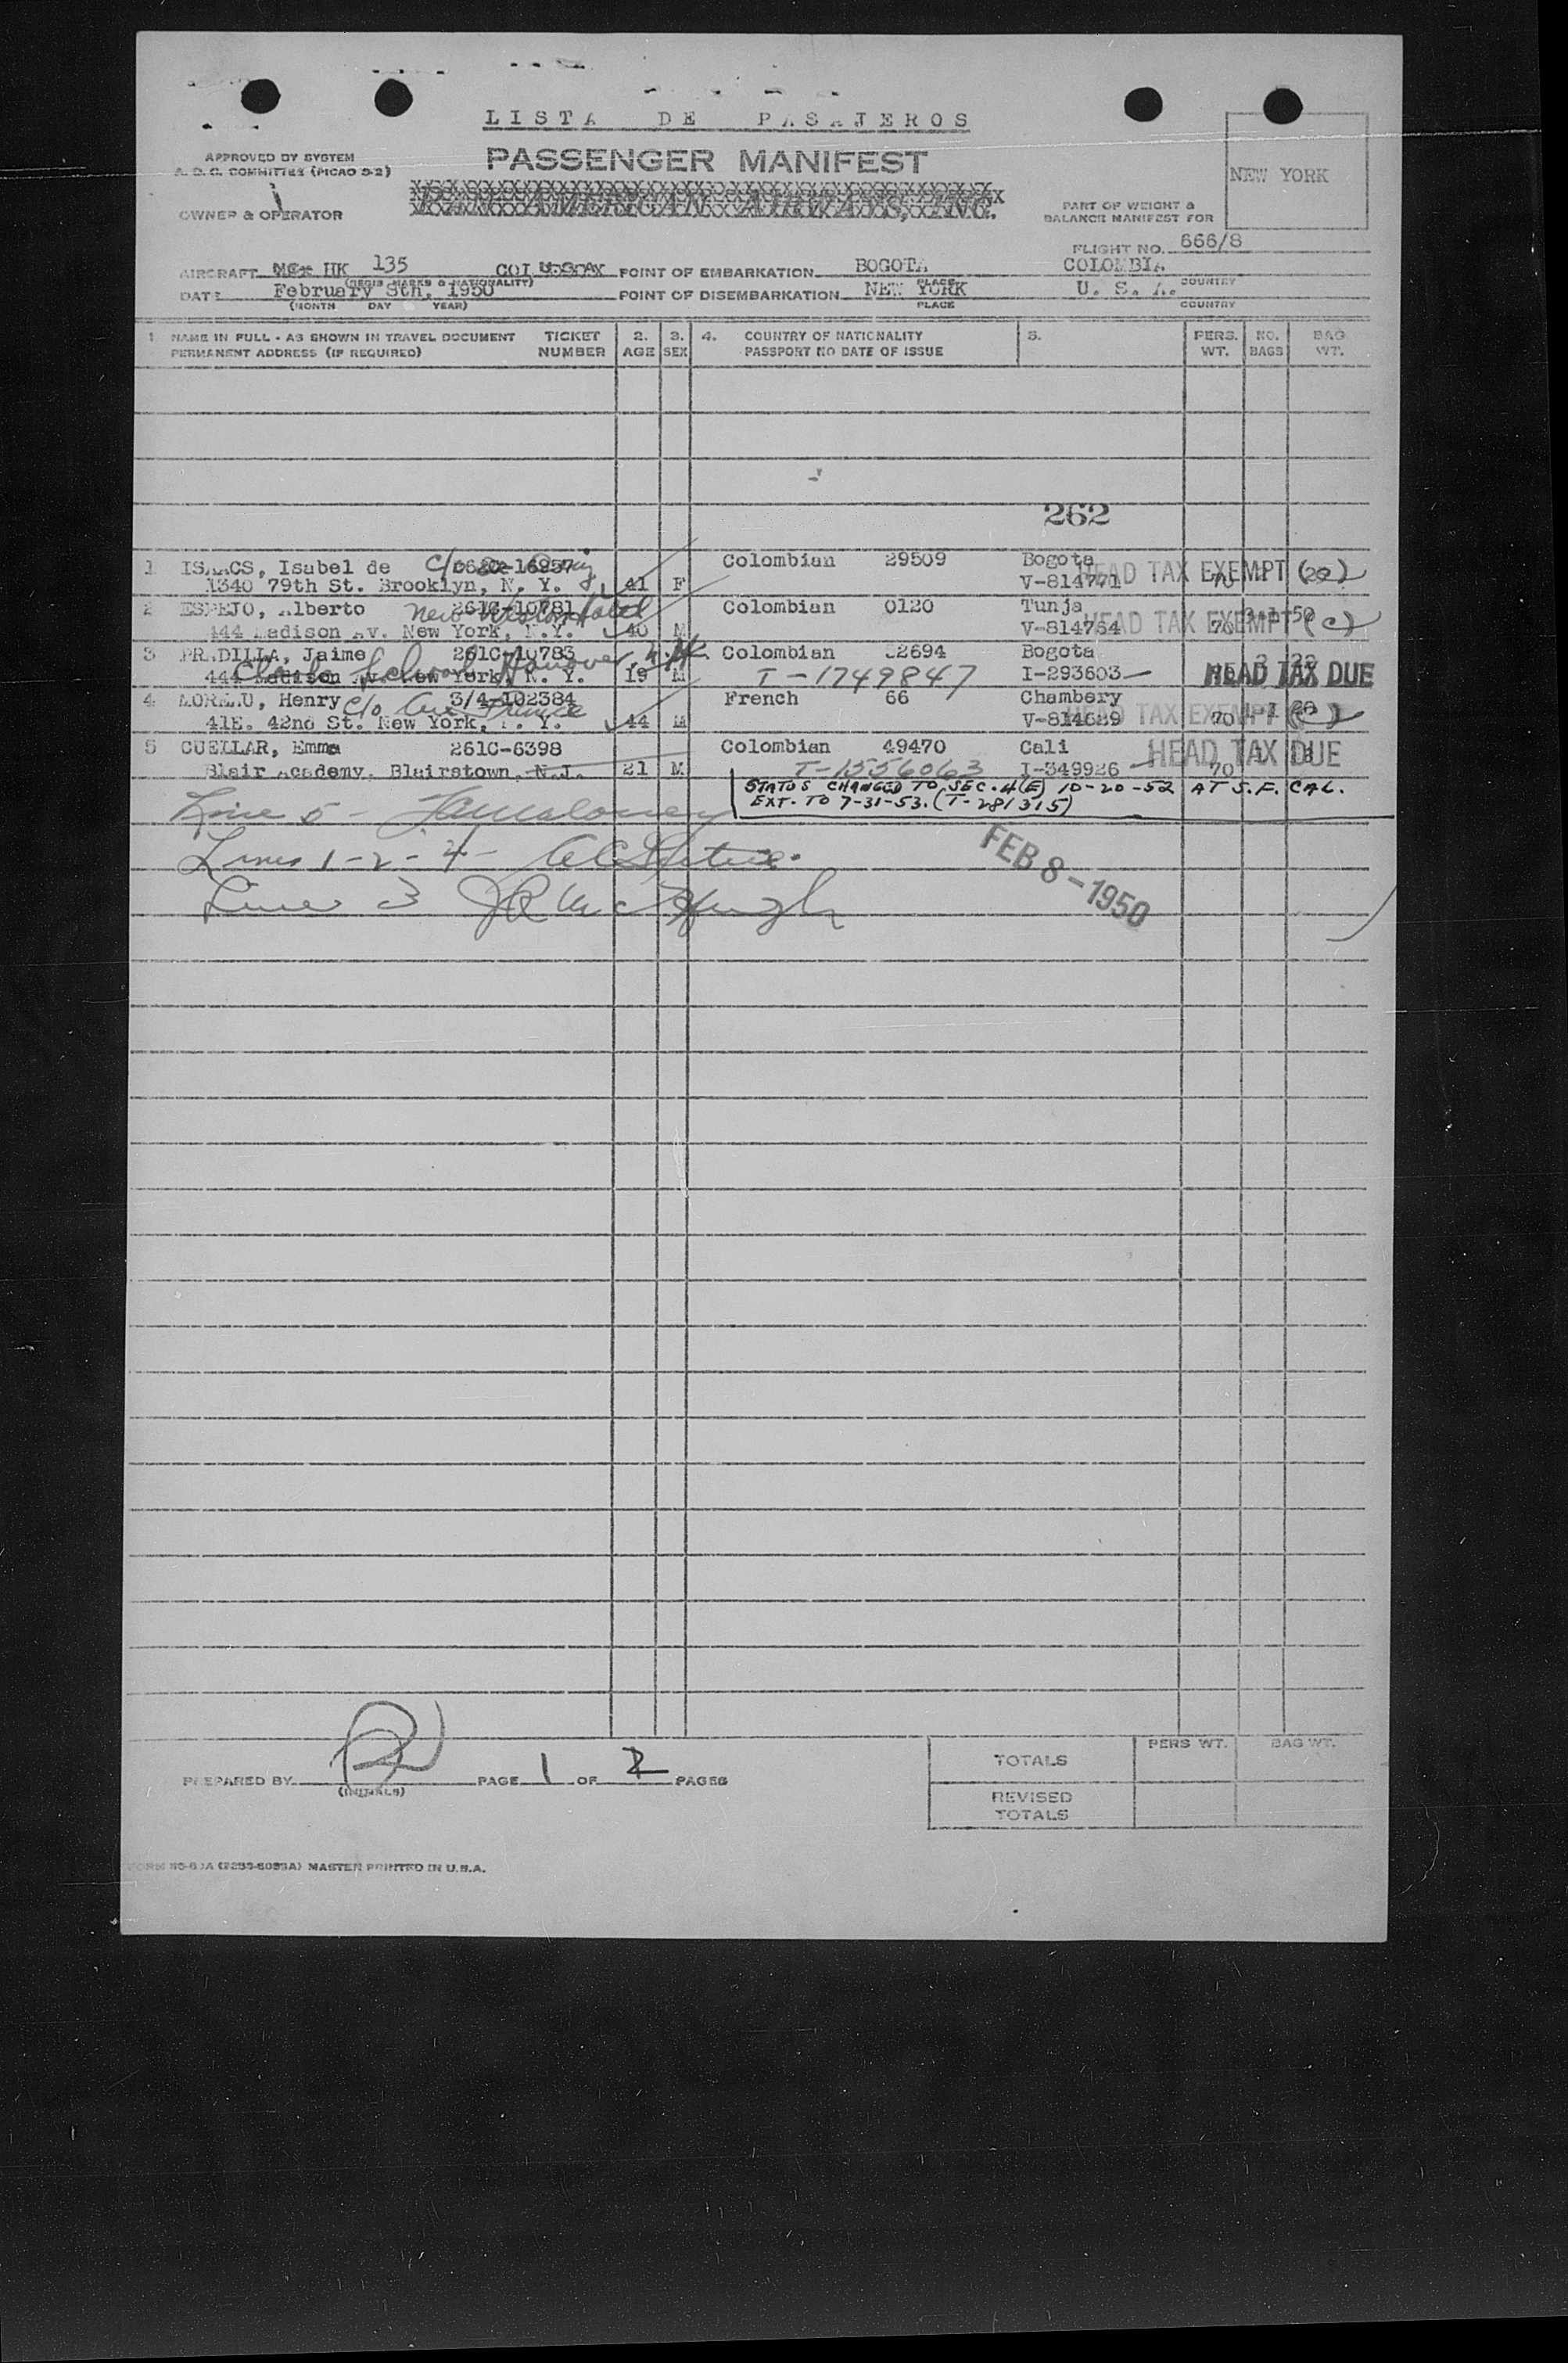 LISTA DE PASAJEROS
APPROVED BY SYSTEM
A. D. C. COMMITTEE (PICAO 5-2)
PASSENGER MANIFEST
NEW YORK
OWNER & OPERATOR
PAN AMERICAN AIRWAYS, INC.
PART OF WEIGHT &
BALANCE MANIFEST FOR
FLIGHT NO. 666/8
AIRCRAFT HK 135 COL
(REGIS MARKS & NATIONALITY)
POINT OF EMBARKATION BOGOTA COLOMBIA
PLACE COUNTRY
DATE February 8th, 1950
(MONTH DAY YEAR)
POINT OF DISEMBARKATION NEW YORK U. S. A.
PLACE COUNTRY
1 NAME IN FULL - AS SHOWN IN TRAVEL DOCUMENT TICKET 2. 3. 4. COUNTRY OF NATIONALITY 5. PERS. NO. BAG
PERMANENT ADDRESS (IF REQUIRED) NUMBER AGE SEX PASSPORT NO DATE OF ISSUE WT. BAGS WT.
262
1 ISAACS, Isabel de c/o Colombian 29509 Bogota
1340 79th St. Brooklyn, N. Y. 41 F V-814771 HEAD TAX EXEMPT (20)
2 ESPEJO, Alberto 261C-10781 New Weston Hotel Colombian 0120 Tunja
444 Madison Av. New York, N.Y. 40 M V-814754 70 HEAD TAX EXEMPT (C)
3 PRADILLA, Jaime 261C-10783 Colombian 2694 Bogota
Clark School Hanover, N.H.
444 Madison Av. New York, N. Y. 19 M T-1749847 I-293603 HEAD TAX DUE
4 MOREAU, Henry 3/4-102384 c/o Air France French 66 Chambery
41E. 42nd St. New York, N. Y. 44 M V-814689 70 HEAD TAX EXEMPT (C)
5 CUELLAR, Emma 261C-6398 Colombian 49470 Cali
Blair Academy, Blairstown, N.J. 21 M T-1556063 I-349926 70 HEAD TAX DUE
STATUS CHANGED TO SEC. 4(E) 10-20-52 AT S.F. CAL.
EXT. TO 7-31-53. (T-281315)
Line 5 -
Lines 1-2-4-
Line 3 JR McHugh
FEB 8-1950
PREPARED BY
(INITIALS)
PAGE 1 OF 2 PAGES
PERS WT. BAG WT.
TOTALS
REVISED
TOTALS
MASTER PRINTED IN U.S.A.